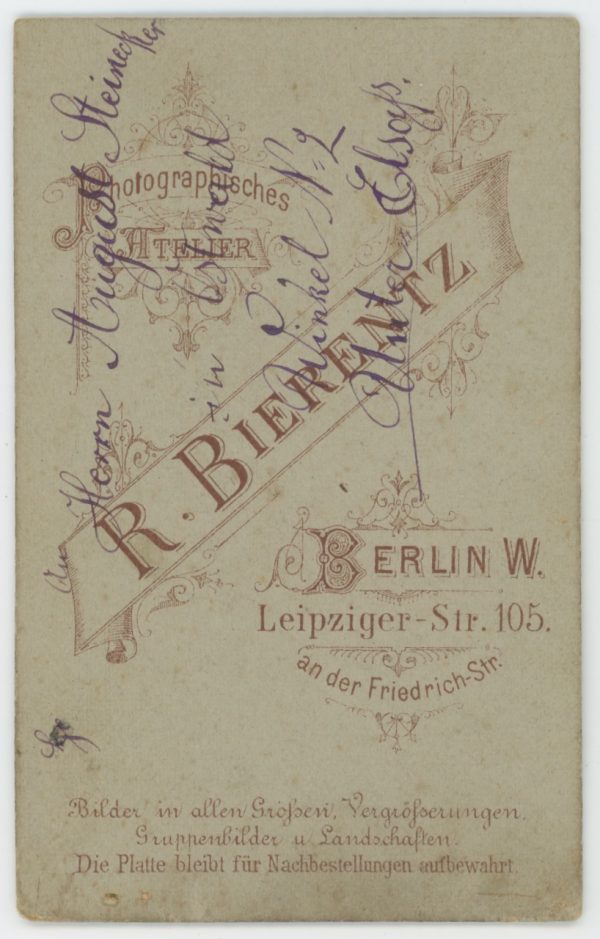 Photographisches
ATELIER
R. BIERENTZ
BERLIN W.
Leipziger-Str. 105.
an der Friedrich-Str.
Bilder in allen Größen, Vergrößerungen,
Gruppenbilder u. Landschaften.
Die Platte bleibt für Nachbestellungen aufbewahrt.
An Herrn August Steinecker
in
Winkel N=2
Unter Elsaß.